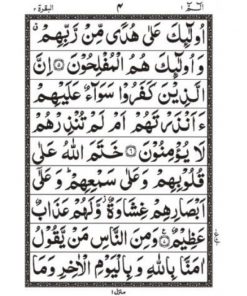 البقرة ٢ ٤ الٓمّٓ ١
اُولٰٓئِكَ عَلٰى هُدًى مِّنْ رَّبِّهِمْ ۗ
وَاُولٰٓئِكَ هُمُ الْمُفْلِحُوْنَ ۝٥ اِنَّ
الَّذِيْنَ كَفَرُوْا سَوَآءٌ عَلَيْهِمْ
ءَاَنْذَرْتَهُمْ اَمْ لَمْ تُنْذِرْهُمْ
لَا يُؤْمِنُوْنَ ۝٦ خَتَمَ اللّٰهُ عَلٰى
قُلُوْبِهِمْ وَعَلٰى سَمْعِهِمْ ؕ وَعَلٰٓى
اَبْصَارِهِمْ غِشَاوَةٌ ؗ وَّلَهُمْ عَذَابٌ
عَظِيْمٌ ۝٧ وَمِنَ النَّاسِ مَنْ يَّقُوْلُ
اٰمَنَّا بِاللّٰهِ وَبِالْيَوْمِ الْاٰخِرِ وَمَا
منزل ١